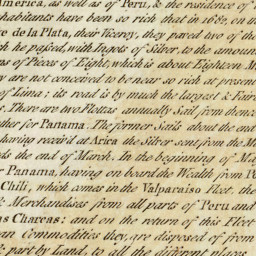 America, as well as of Peru, & the residence of
habitants have been so rich that in 1682, on the
de la Plata, their Viceroy, they paved two of the
ch he passed, with Ingots of Silver to the amount
ns of Pieces of Eight, which is about Eighteen M
y are not conceived to be near so rich at present
of Lima; its road is by much the largest & Fair
s. There are two Flottas annually Sail from thence
ther for Panama. The former Sails about the end
having receiv'd at Arica the Silver sent from the M
ds the end of March. In the beginning of M
r Panama, having on board the Wealth from P
Chili, which comes in the Valparaiso Fleet. the
& Merchandises from all parts of Peru and
as Charcas: and on the return of this Fleet
an Commodities they are disposed of from
& part by Land, to all the different places